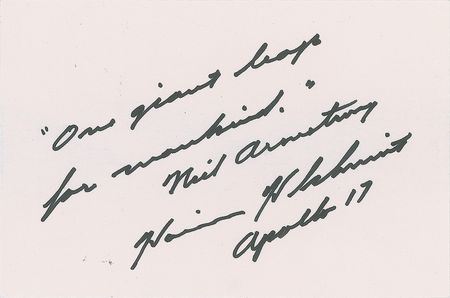 "One giant leap
for mankind."
Neil Armstrong
Harrison H. Schmitt
Apollo 17